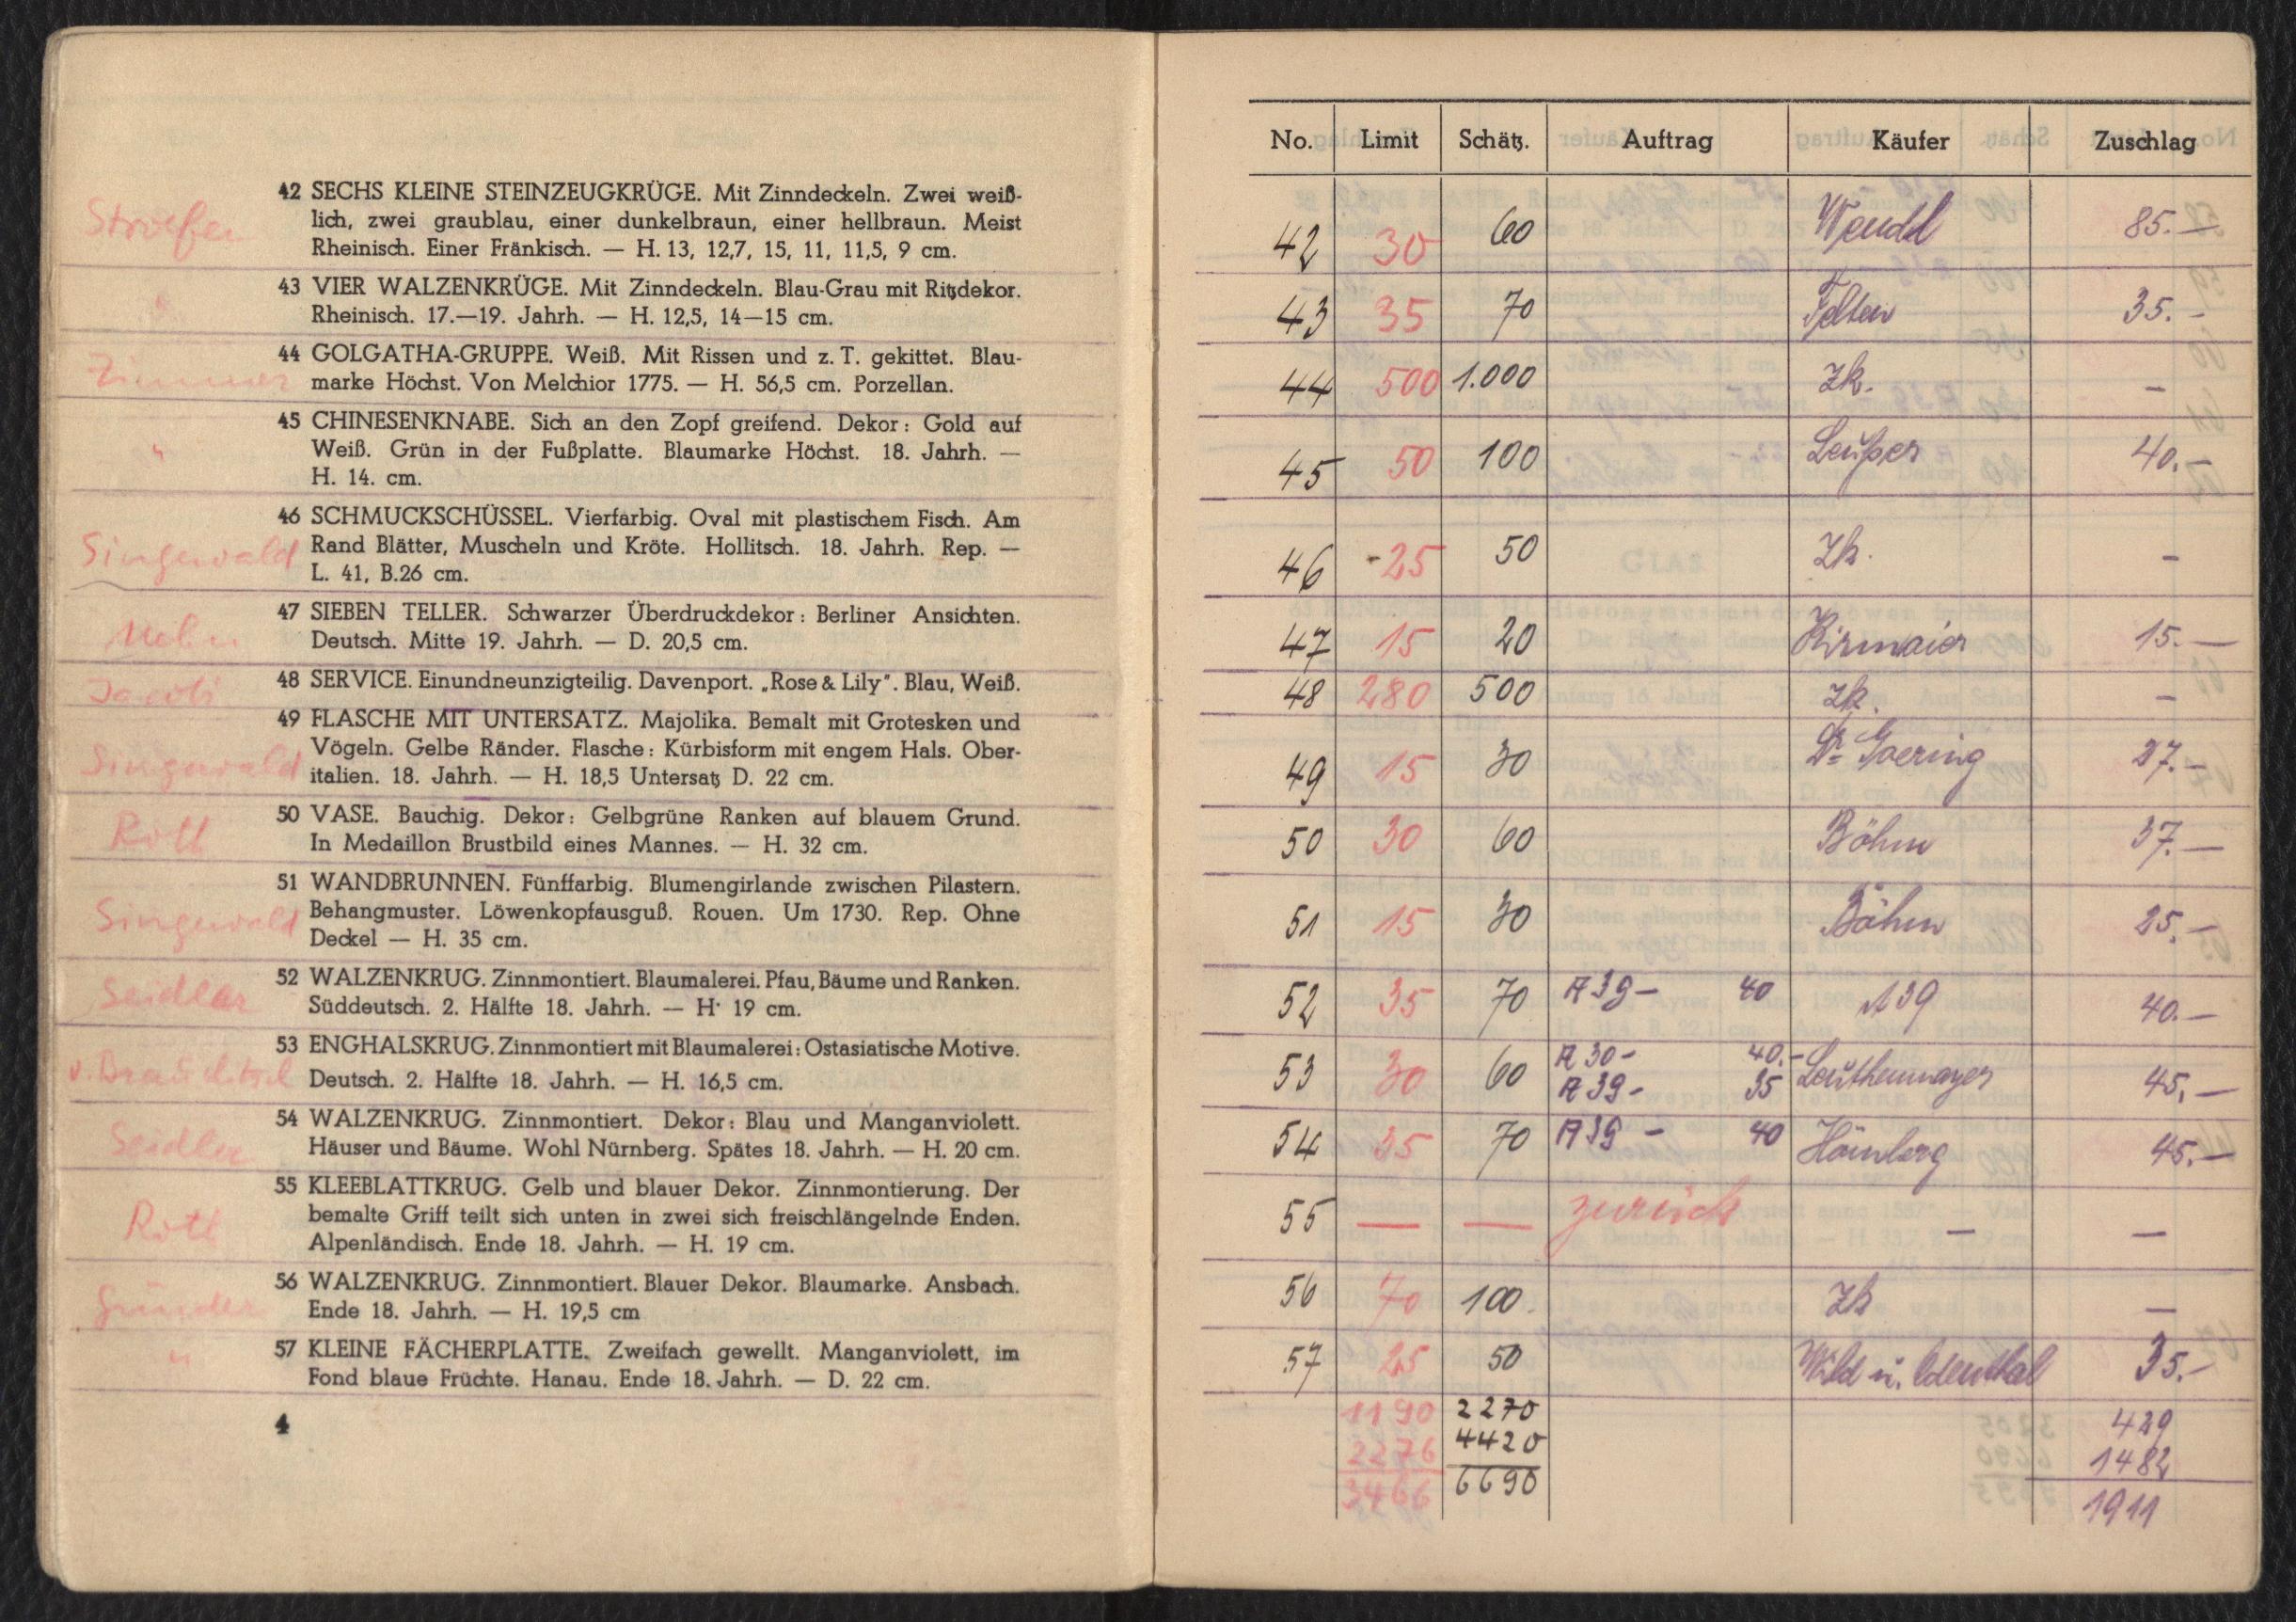 42 SECHS KLEINE STEINZEUGKRÜGE. Mit Zinndeckeln. Zwei weiß-
Stroefer
lich, zwei graublau, einer dunkelbraun, einer hellbraun. Meist
Rheinisch. Einer Fränkisch. — H. 13, 12,7, 15, 11, 11,5, 9 cm.
43 VIER WALZENKRÜGE. Mit Zinndeckeln. Blau-Grau mit Ritzdekor.
"
Rheinisch. 17.—19. Jahrh. — H. 12,5, 14—15 cm.
44 GOLGATHA-GRUPPE. Weiß. Mit Rissen und z. T. gekittet. Blau-
Zimmer
marke Höchst. Von Melchior 1775. — H. 56,5 cm. Porzellan.
45 CHINESENKNABE. Sich an den Zopf greifend. Dekor: Gold auf
"
Weiß. Grün in der Fußplatte. Blaumarke Höchst. 18. Jahrh. —
H. 14. cm.
46 SCHMUCKSCHÜSSEL. Vierfarbig. Oval mit plastischem Fisch. Am
Singewald
Rand Blätter, Muscheln und Kröte. Hollitsch. 18. Jahrh. Rep. —
L. 41, B.26 cm.
47 SIEBEN TELLER. Schwarzer Überdruckdekor: Berliner Ansichten.
Deutsch. Mitte 19. Jahrh. — D. 20,5 cm.
Jacobi
48 SERVICE. Einundneunzigteilig. Davenport. „Rose & Lily". Blau, Weiß.
49 FLASCHE MIT UNTERSATZ. Majolika. Bemalt mit Grotesken und
Singewald
Vögeln. Gelbe Ränder. Flasche: Kürbisform mit engem Hals. Ober-
italien. 18. Jahrh. — H. 18,5 Untersatz D. 22 cm.
50 VASE. Bauchig. Dekor: Gelbgrüne Ranken auf blauem Grund.
Roth
In Medaillon Brustbild eines Mannes. — H. 32 cm.
51 WANDBRUNNEN. Fünffarbig. Blumengirlande zwischen Pilastern.
Singewald
Behangmuster. Löwenkopfausguß. Rouen. Um 1730. Rep. Ohne
Deckel — H. 35 cm.
52 WALZENKRUG. Zinnmontiert. Blaumalerei. Pfau, Bäume und Ranken.
Seidler
Süddeutsch. 2. Hälfte 18. Jahrh. — H· 19 cm.
53 ENGHALSKRUG. Zinnmontiert mit Blaumalerei: Ostasiatische Motive.
v. Brauchitsch
Deutsch. 2. Hälfte 18. Jahrh. — H. 16,5 cm.
54 WALZENKRUG. Zinnmontiert. Dekor: Blau und Manganviolett.
Seidler
Häuser und Bäume. Wohl Nürnberg. Spätes 18. Jahrh. — H. 20 cm.
55 KLEEBLATTKRUG. Gelb und blauer Dekor. Zinnmontierung. Der
Roth
bemalte Griff teilt sich unten in zwei sich freischlängelnde Enden.
Alpenländisch. Ende 18. Jahrh. — H. 19 cm.
56 WALZENKRUG. Zinnmontiert. Blauer Dekor. Blaumarke. Ansbach.
Günder
Ende 18. Jahrh. — H. 19,5 cm
57 KLEINE FÄCHERPLATTE. Zweifach gewellt. Manganviolett, im
"
Fond blaue Früchte. Hanau. Ende 18. Jahrh. — D. 22 cm.
4
No. Limit Schätz. Auftrag Käufer Zuschlag
42 30 60 Wendl 85.—
43 35 70 Felten 35.-
44 500 1.000 Zk. –
45 50 100 40.–
46 -25 50 Zk. –
47 15 20 Kirmaier 15.—
48 280 500 Zk. –
49 15 30 Dr. Goering 27.–
50 30 60 Böhm 37.—
51 15 30 Böhm 25.–
52 35 70 A 39 – 40 A 39 40.—
53 30 60 A 30 – 40.– Leuthenmayer 45,—
A 39 – 35
54 35 70 A 39 – 40 Hömberg 45.—
55 — — zurück — —
56 70 100. Zk —
57 25 50 Wild u. Odenthal 35.-
1190 2270 429
2276 4420 1482
3466 6690 1911